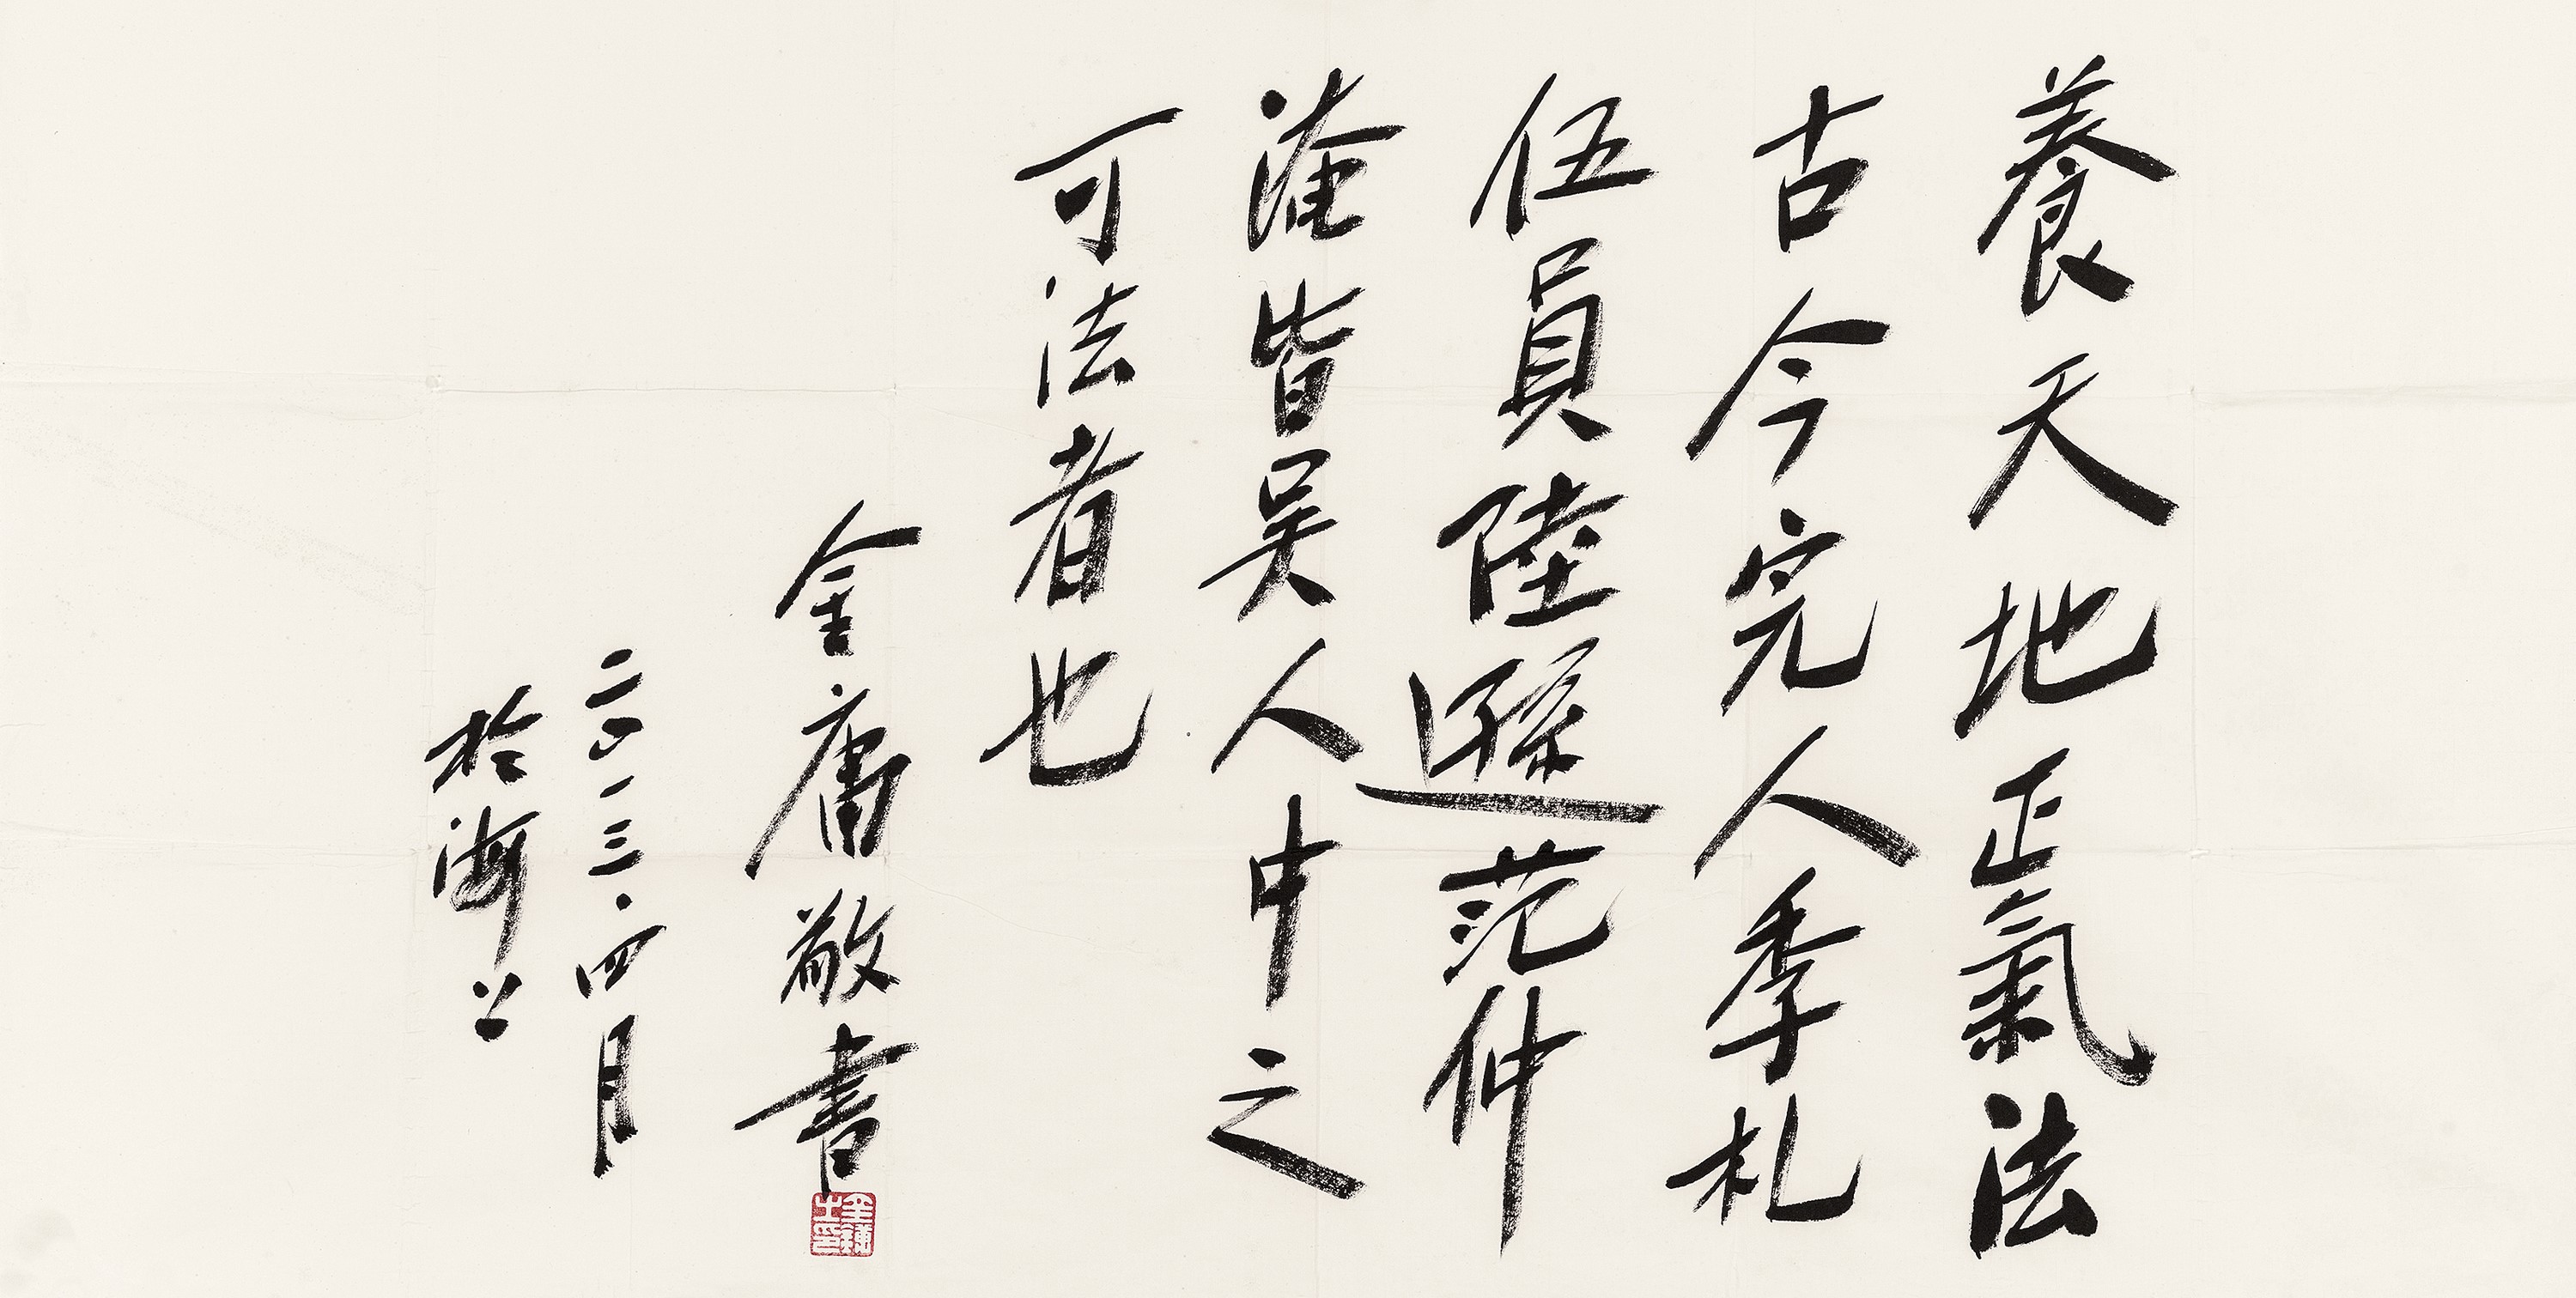 養天地正氣法
古今完人季札
伍員陸遜范仲
淹皆吴人中之
可法者也
金庸敬書
二〇一三.四月
於海上